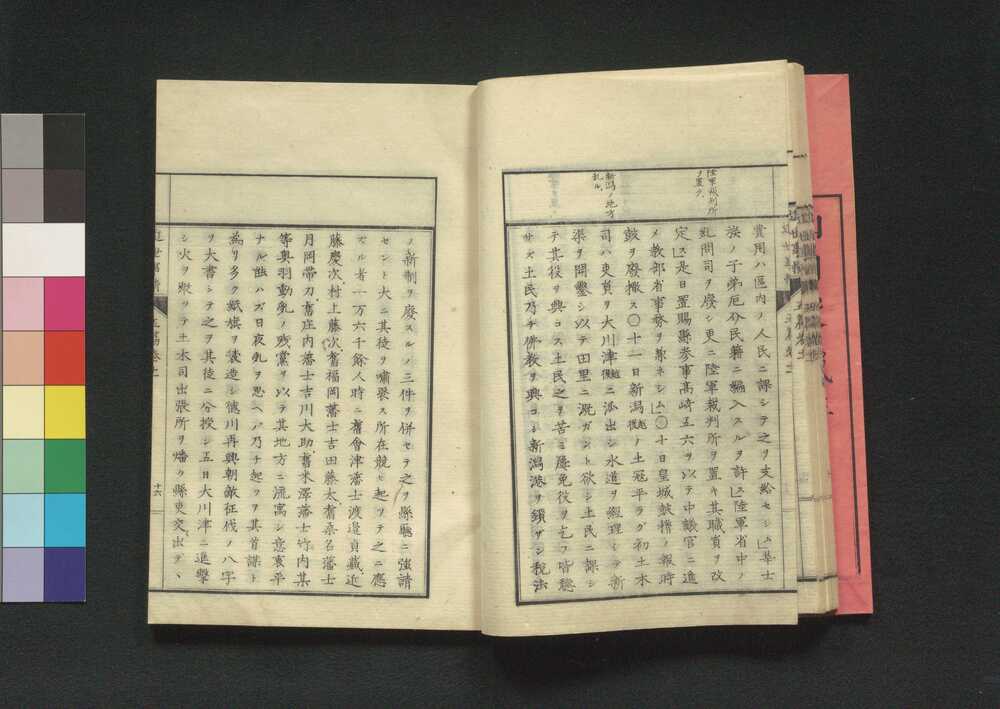 陸軍裁判所
ヲ置ク、
新潟ノ地方
乱ル、
費用ハ區内ノ人民ニ課シテ之ヲ支給セシム華士
族ノ子弟厄介民籍ニ編入スルヲ許ス陸軍省中ノ
糺問司ヲ廢シ更ニ陸軍裁判所ヲ置キ其職員ヲ改
定ス是日置賜縣参事髙﨑五六ヲ以テ中議官ニ進
メ教部省事務ヲ兼ネシム〇十日皇城鼓樓ノ報時
鼓ヲ廢撤ス〇十一日新潟越後ノ土寇平ラグ初土木
司ハ吏員ヲ大川津越後ニ派出シ水道ヲ經理シ新
渠ヲ開鑿シ以テ田里ニ漑ガント欲シ土民ニ課シ
テ其役ヲ興コス土民之ヲ苦ミ屡免役ヲ乞フ皆聴
サズ土民乃チ佛教ヲ興コシ新潟港ヲ鎖ザシ税法
ノ新制ヲ廢スルノ三件ヲ併セテ之ヲ縣廳ニ強請
セント大ニ其徒ヲ嘯聚ス所在競ヒ起ツテ之ニ應
ズル者一万六千餘人時ニ舊會津藩士渡邊貞藏近
藤慶次村上藤次舊福岡藩士吉田藤太舊桑名藩士
月岡帶刀舊庄内藩士吉川大助舊米澤藩士竹内某
等奥羽動乱ノ残黨ヲ以テ其地方ニ流寓シ意衷平
ナル蝕ハズ日夜乱ヲ思ヘバ乃チ起ツヲ其首謀ト
爲リ多ク紙旗ヲ裝造シ德川再興朝敵征伐ノ八字
ヲ大書シテ之ヲ其徒ニ分授シ五日大川津ニ進擊
シ火ヲ縱ツテ土木司出張所ヲ燔ク縣吏交出テ、
十六